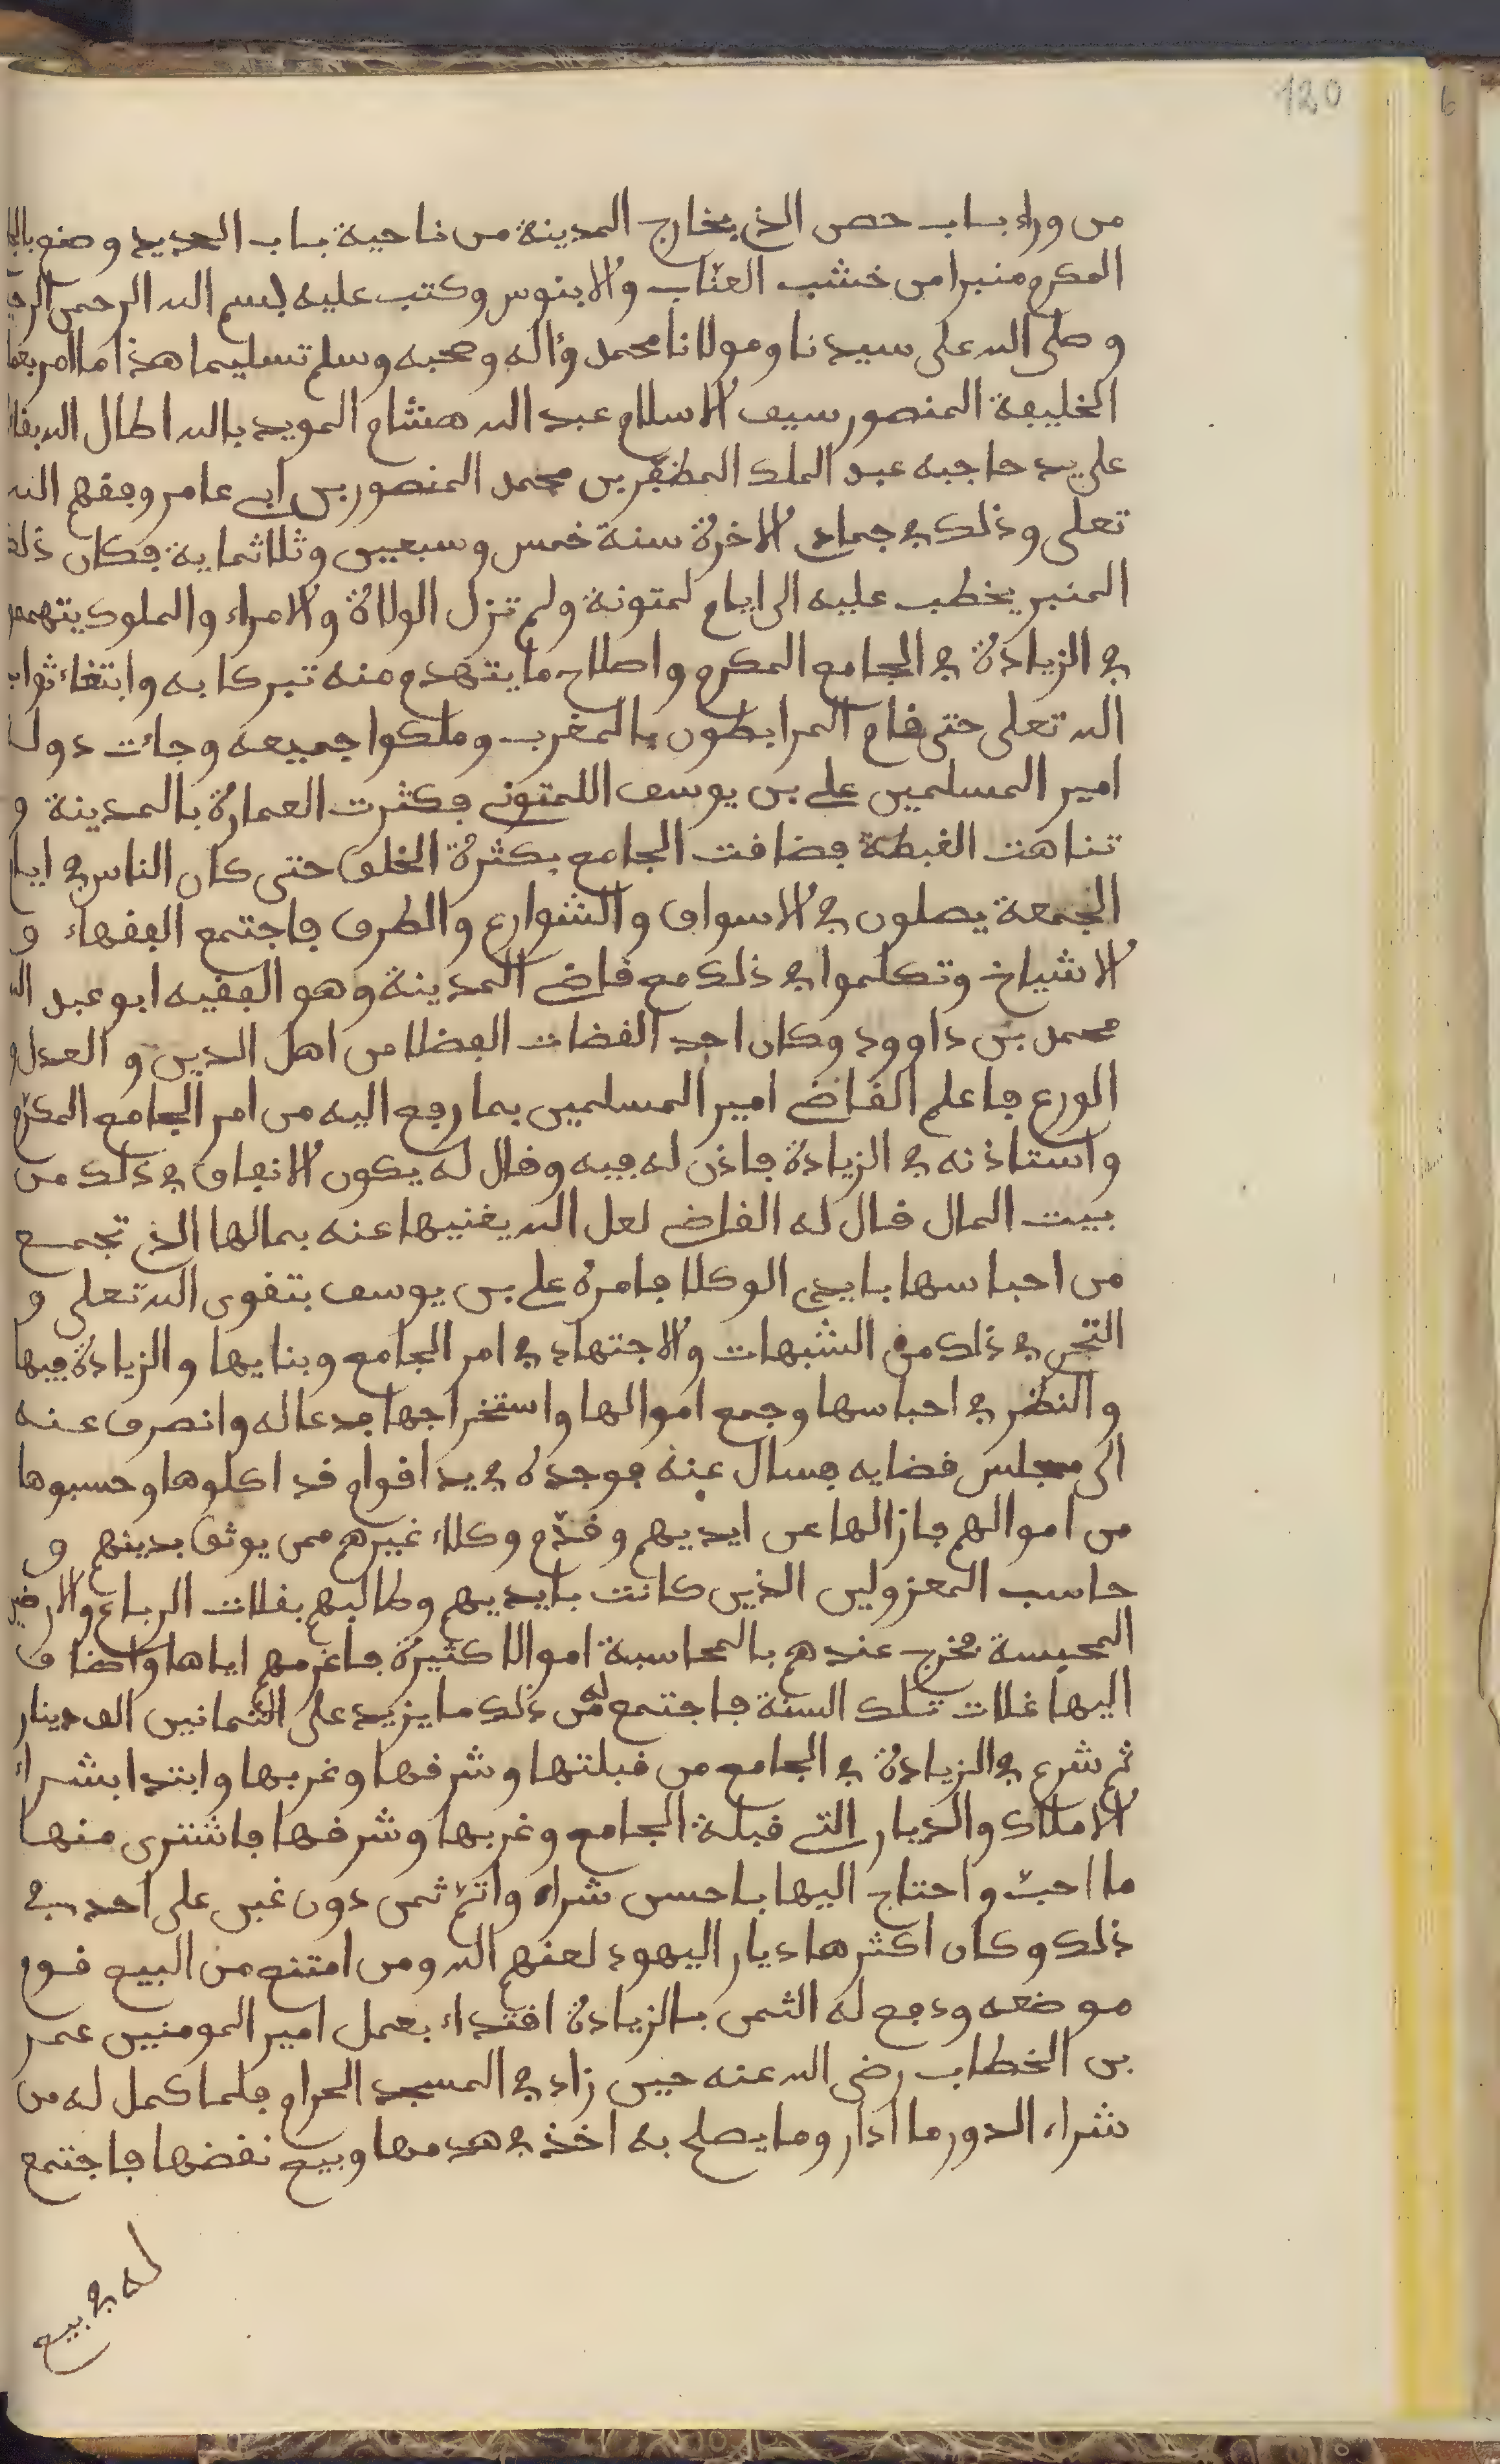 120
من وراء باب حصن الذي بخارج المدينة من ناحية باب الحديد وصنع
المكرم منبرا من خشب العناب والابنوس وكتب عليه بسم الله الرحمن
وصلى الله على سيدنا ومولانا محمد وءاله وصحبه وسلم تسليما هذا ما امر بعمل
الخليفة المنصور سيف الاسلام عبد الله هشام المويد بالله اطال الله بقاء
على يد حاجبه عبد الملك المظفر بن محمد المنصور بن ابي عامر وفقهم الله
تعلى وذلك في جمادى الاخرة سنة خمس وسبعين وثلاثماية فكان ذلك
المنبر يخطب عليه الى ايام لمتونة ولم تزل الولاة والامراء والملوك يتهممون
في الزيادة في الجامع المكرم واصلاح ما يتهدم منه تبركا به وابتغاء ثواب
الله تعلى حتى قام المرابطون بالمغرب وملكوا جميعه وجاءت دولـ
امير المسلمين علي بن يوسف اللمتوني فكثرت العمارة بالمدينة و
تناهت الغبطة فضاقت الجامع بكثرة الخلق حتى كان الناس في ايام
الجمعة يصلون في الاسواق والشوارع والطرق فاجتمع الفقهاء و
الاشياخ وتكلموا في ذلك مع قاضي المدينة وهو الفقيه ابو عبد الله
محمد بن داوود وكان احد القضات الفضلا من اهل الدين والعدل و
الورع فاعلم القاضي امير المسلمين بما رفع اليه من امر الجامع المكرم
واستاذنه في الزيادة فاذن له فيه وقال له يكون الانفاق في ذلك من
بيت المال قال له القاضي لعل الله يغنيها عنه بمالها الذي تجمع
من احباسها بايدي الوكلا فامره علي بن يوسف بتقوى الله تعلى و
التحري في ذلك من الشبهات والاجتهاد في امر الجامع وبنايها والزيادة فيها
والنظر في احباسها وجمع اموالها واستخراجها فدعا له وانصرف عنه
الى مجلس قضايه فسال عنه فوجده في يد اقوام قد اكلوها وحسبوها
من اموالهم فازالها عن ايديهم وقدم وكلاء غيرهم ممن يوثق بدينهم و
حاسب المعزولين الذين كانت بايديهم وطالبهم بغلات الرباع والارضين
المحبسة فخرج عندهم بالمحاسبة اموالا كثيرة فاغرمهم اياها واضاف
اليها غلات تلك السنة فاجتمع له من ذلك ما يزيد على الثمانين الف دينار
ثم شرع في الزيادة في الجامع من قبلتها وشرقها وغربها وابتدا بشراء
الاملاك والديار التي قبلة الجامع وغربها وشرقها فاشترى منها
ما احب واحتاج اليها باحسن شراء واتم ثمن دون غبن على احد في
ذلك وكان اكثرها ديار اليهود لعنهم الله ومن امتنع من البيع قوم
موضعه ودفع له الثمن بالزيادة اقتداء بعمل امير المومنين عمر
بن الخطاب رضي الله عنه حين زاد في المسجد الحرام فلما كمل له من
شراء الدور ما ادار وما يصلح به اخذ في هدمها وبيع نقضها فاجتمع
له في بيع